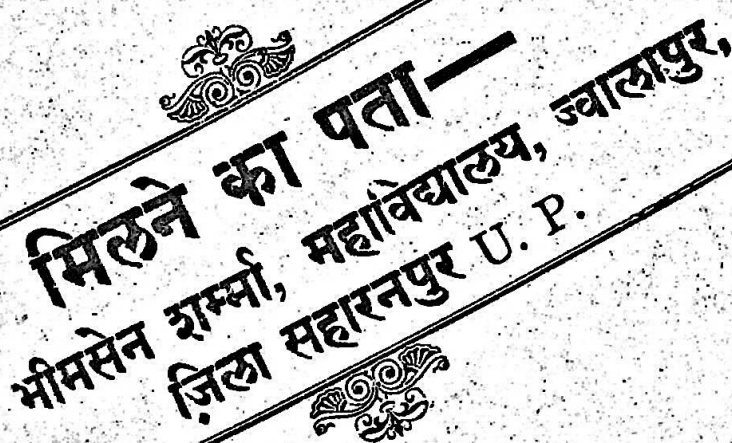 मिलने का पता—
भीमसेन शर्म्मा, महाविद्यालय, ज्वालापुर,
ज़िला सहारनपुर U. P.